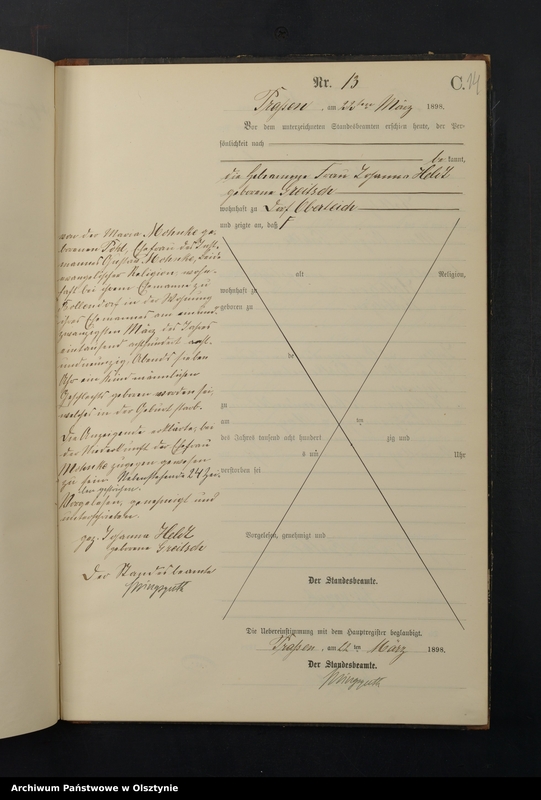 Nr. 13
C.
14
Trossen, am 22ten März 1898.
Vor dem unterzeichneten Standesbeamten erschien heute, der Per-
sönlichkeit nach
be kannt,
die Hebeamme Frau Johanna Heldt
geborene
wohnhaft zu Dorf
und zeigte an, daß
von der Maria Mohnke ge-
borenen Pohl, Ehefrau des Inst-
manns Gustav Mohnke, beide
evangelischer Religion, wohn-
haft bei ihrem Ehemanne zu
in der Wohnung
ihres Ehemannes am einund-
zwanzigsten März des Jahres
eintausend achthundert acht-
undneunzig, Abends sieben
Uhr ein Kind männlichen
Geschlechts geboren worden sei,
welches in der Geburt starb.
Die Anzeigende erklärte, bei
der Niederkunft der Ehefrau
Mohnke zugegen gewesen
zu sein. Nebenstehende 24 Zei-
len gestrichen.
Vorgelesen, genehmigt und
unterschrieben
gez. Johanna Heldt
geborene
Der Standesbeamte
alt Religion,
wohnhaft zu
geboren zu
de
zu
am ten
des Jahres tausend acht hundert zig und
um Uhr
verstorben sei
Vorgelesen, genehmigt und
Der Standesbeamte.
Die Uebereinstimmung mit dem Hauptregister beglaubigt.
Trossen, am 22ten März 1898.
Der Standesbeamte.
Archiwum Państwowe w Olsztynie